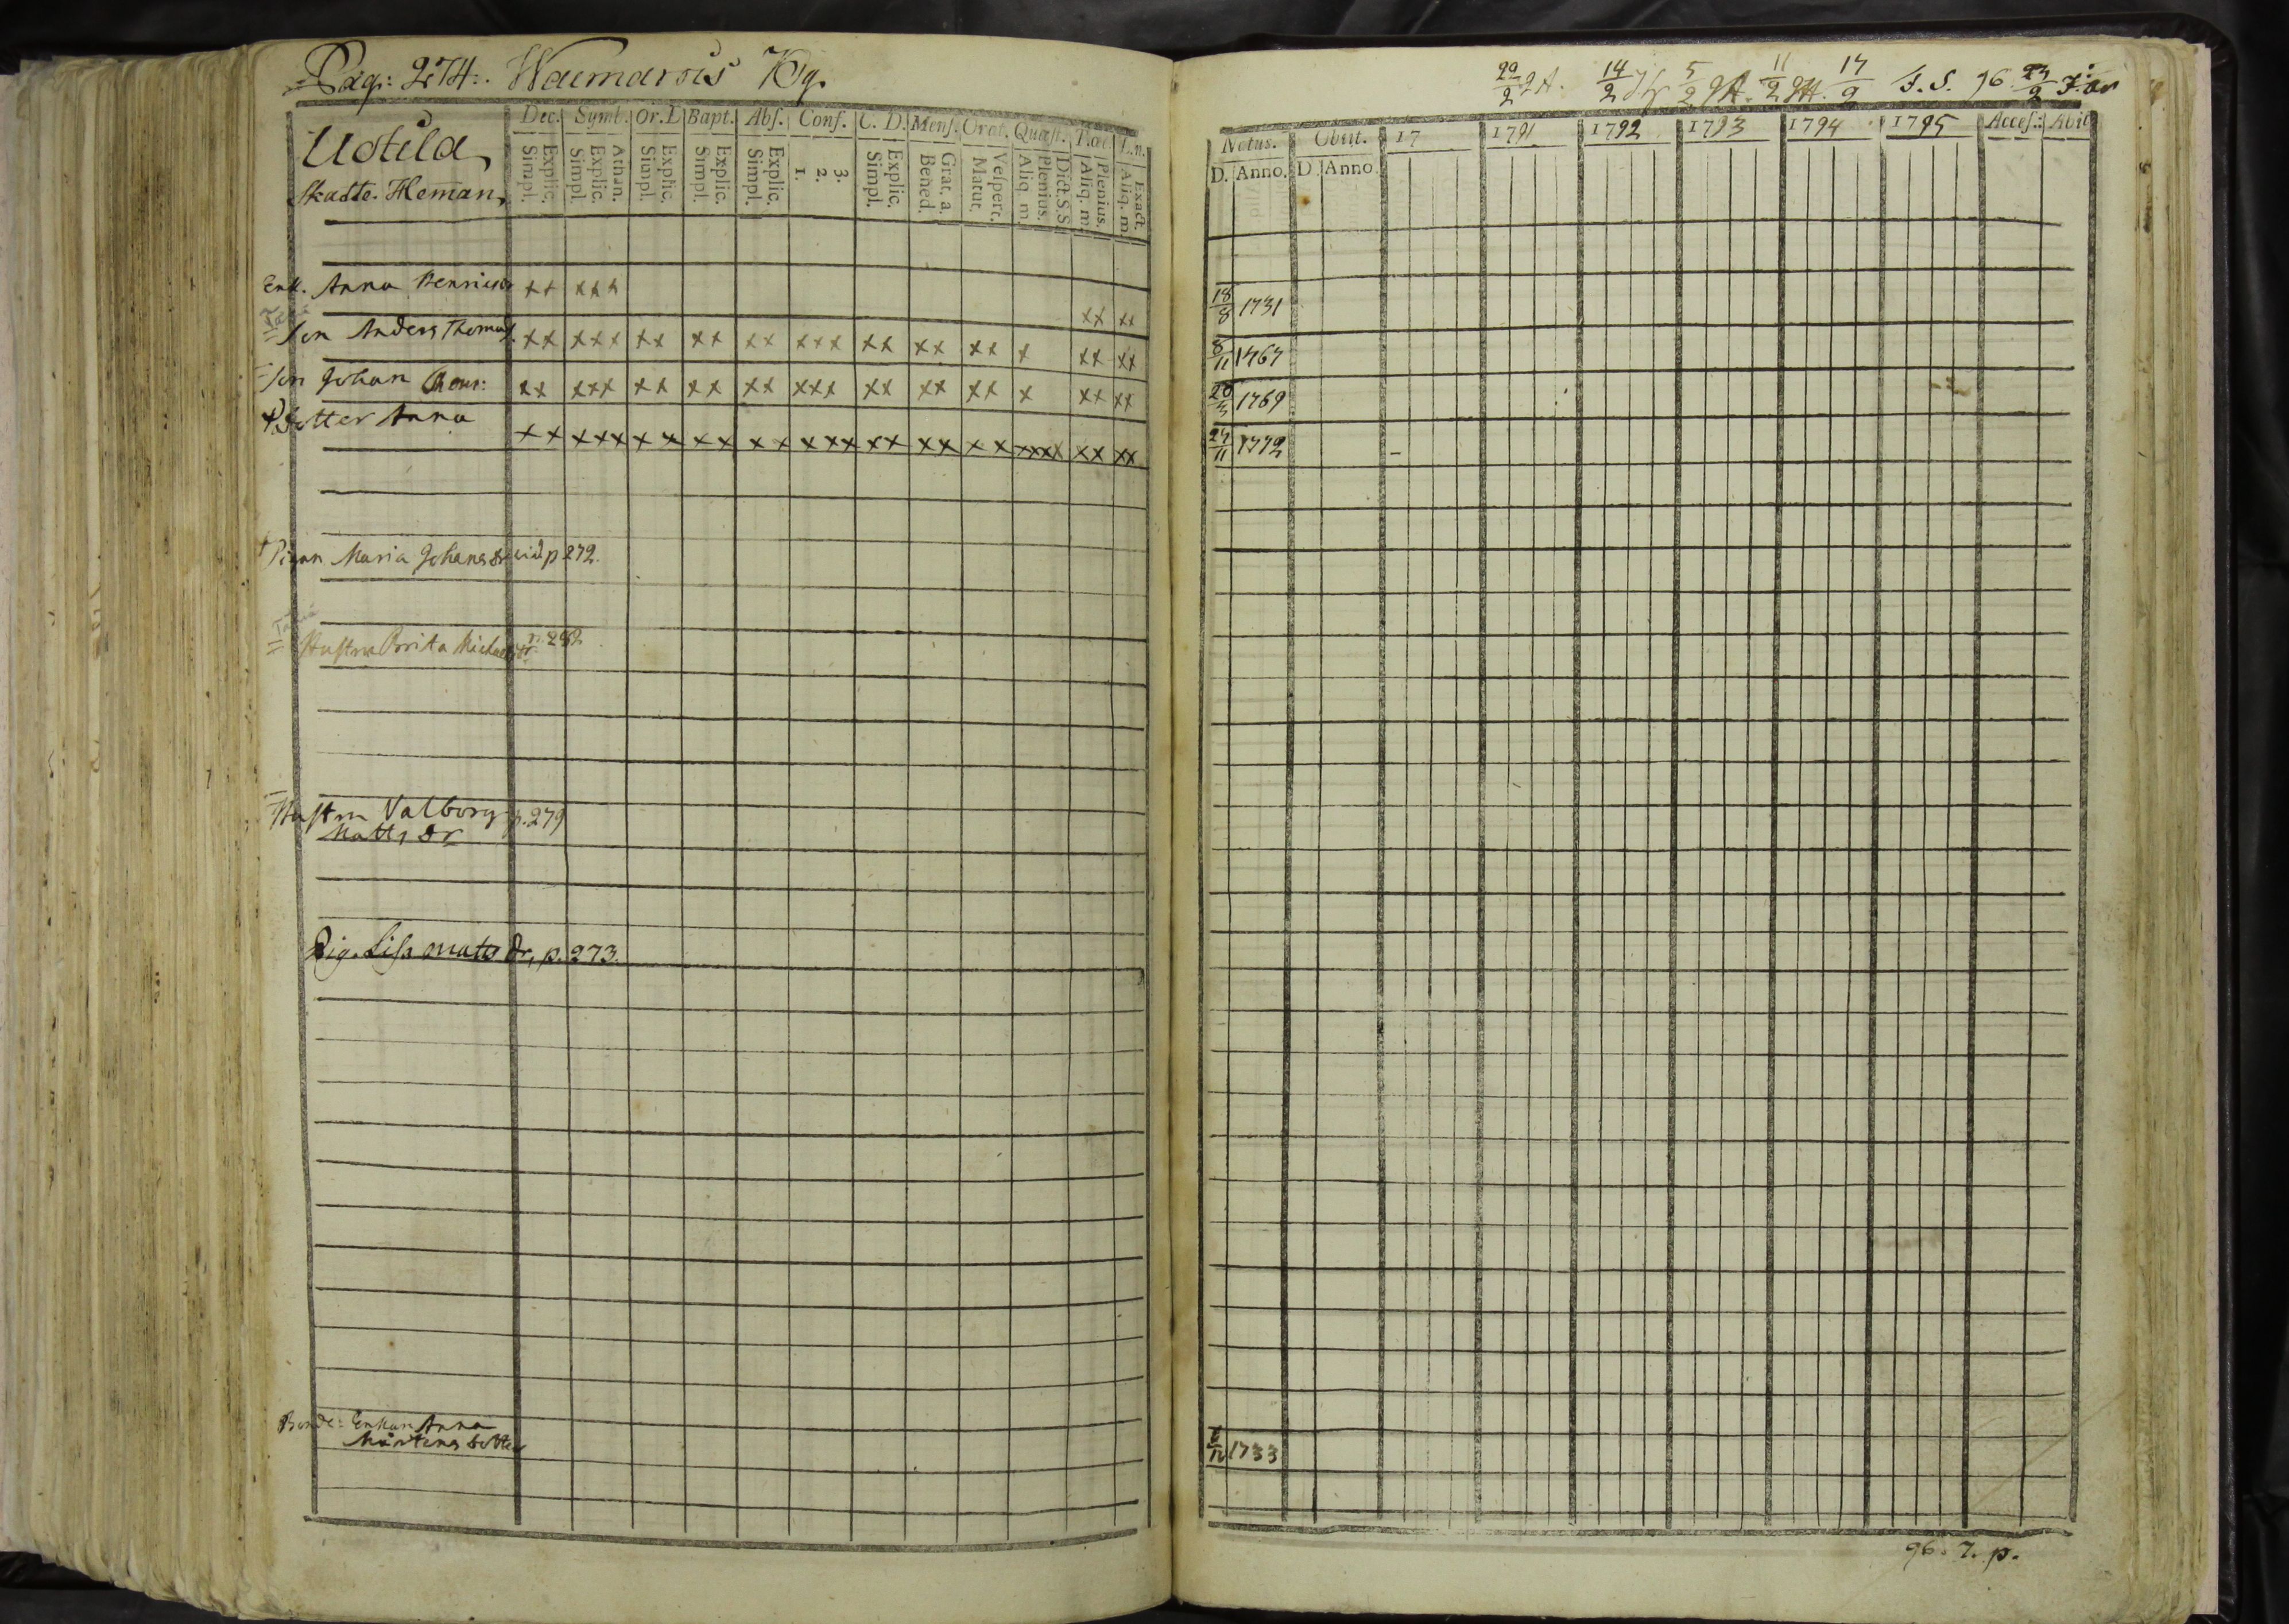 Pag: 274. Waimarois By.
Uotila,
Skatte. Heman,
Dec. Symb. Or. D Bapt. Abs. Conf. C. D. Mens. Orat. Quæst. T.œc. L.n.
Explic. Simpl. Athan. Explic. Simpl. Explic. Simpl. Explic. Simpl. Explic. Simpl. 3. 2. 1. Explic. Simpl. Grat. a. Bened. Vespert. Matut. Dict. S.S. Plenius. Aliq. m. Plenius. Aliq. m. Exact. Aliq. m.
Enk. Anna Henricsdr xx xxx xx xx
Son Anders Thomas. xx xxx xx xx xx xxx xx xx xx x xx xx
Son Johan Thom: xx xxx xx xx xx xxx xx xx xx x xx xx
Dotter Anna xx xxx xx xx xx xxx xx xx xx xxxx xx xx
Pigan Maria Johansdr vid p 272.
Hustru Brita Michelsdr p. 282
Hustru Valborg p. 279
Matts dr
Pig. Lisa Matts dr, p. 273.
Bonde: Enkan Anna
Mårtens dotter
29/2 14/2 5/2 11/2 17/2 F. S. 96. 23/2
Natus. Obiit. 17 1791 1792 1793 1794 1795 Acces: Abit
D. Anno. D Anno.
18/8 1731
8/11 1767
20/3 1769
27/11 1772
6/12 1733
96. 7. p.